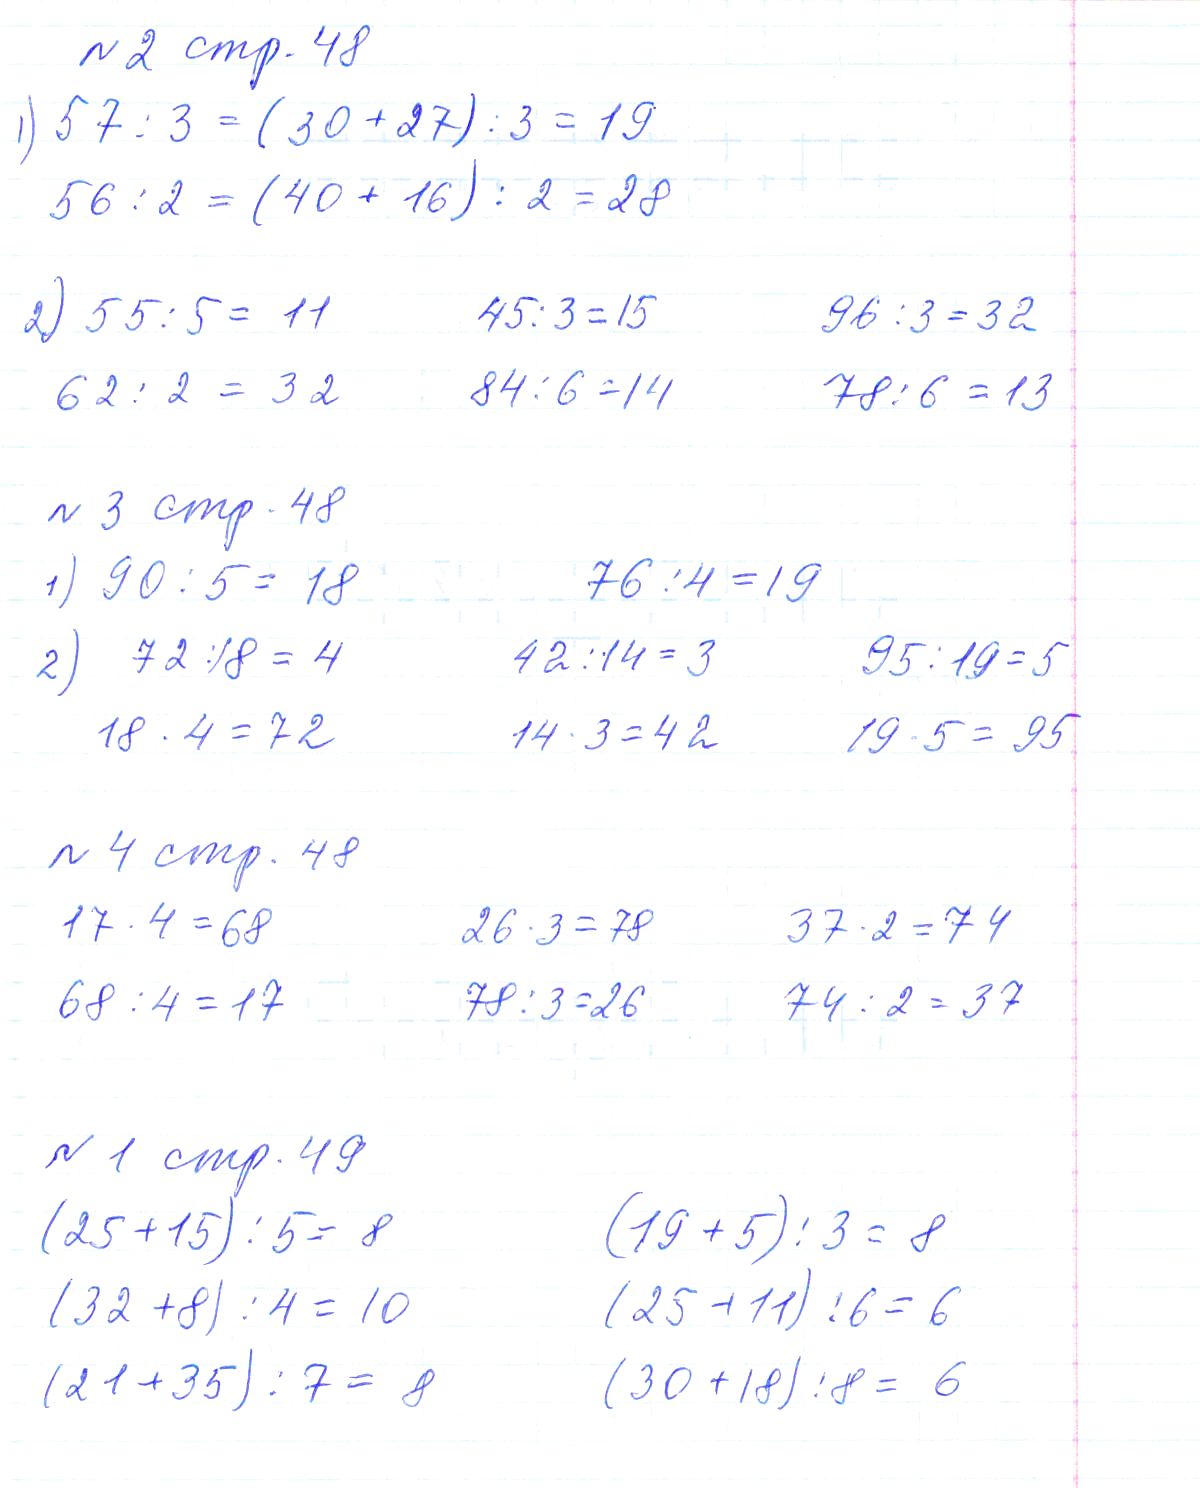 № 2 стр. 48
1) 57 : 3 = (30 + 27) : 3 = 19
56 : 2 = (40 + 16) : 2 = 28
2) 55 : 5 = 11 45 : 3 = 15 96 : 3 = 32
62 : 2 = 32 84 : 6 = 14 78 : 6 = 13
№ 3 стр. 48
1) 90 : 5 = 18 76 : 4 = 19
2) 72 : 18 = 4 42 : 14 = 3 95 : 19 = 5
18 · 4 = 72 14 · 3 = 42 19 · 5 = 95
№ 4 стр. 48
17 · 4 = 68 26 · 3 = 78 37 · 2 = 74
68 : 4 = 17 78 : 3 = 26 74 : 2 = 37
№ 1 стр. 49
(25 + 15) : 5 = 8 (19 + 5) : 3 = 8
(32 + 8) : 4 = 10 (25 + 11) : 6 = 6
(21 + 35) : 7 = 8 (30 + 18) : 8 = 6